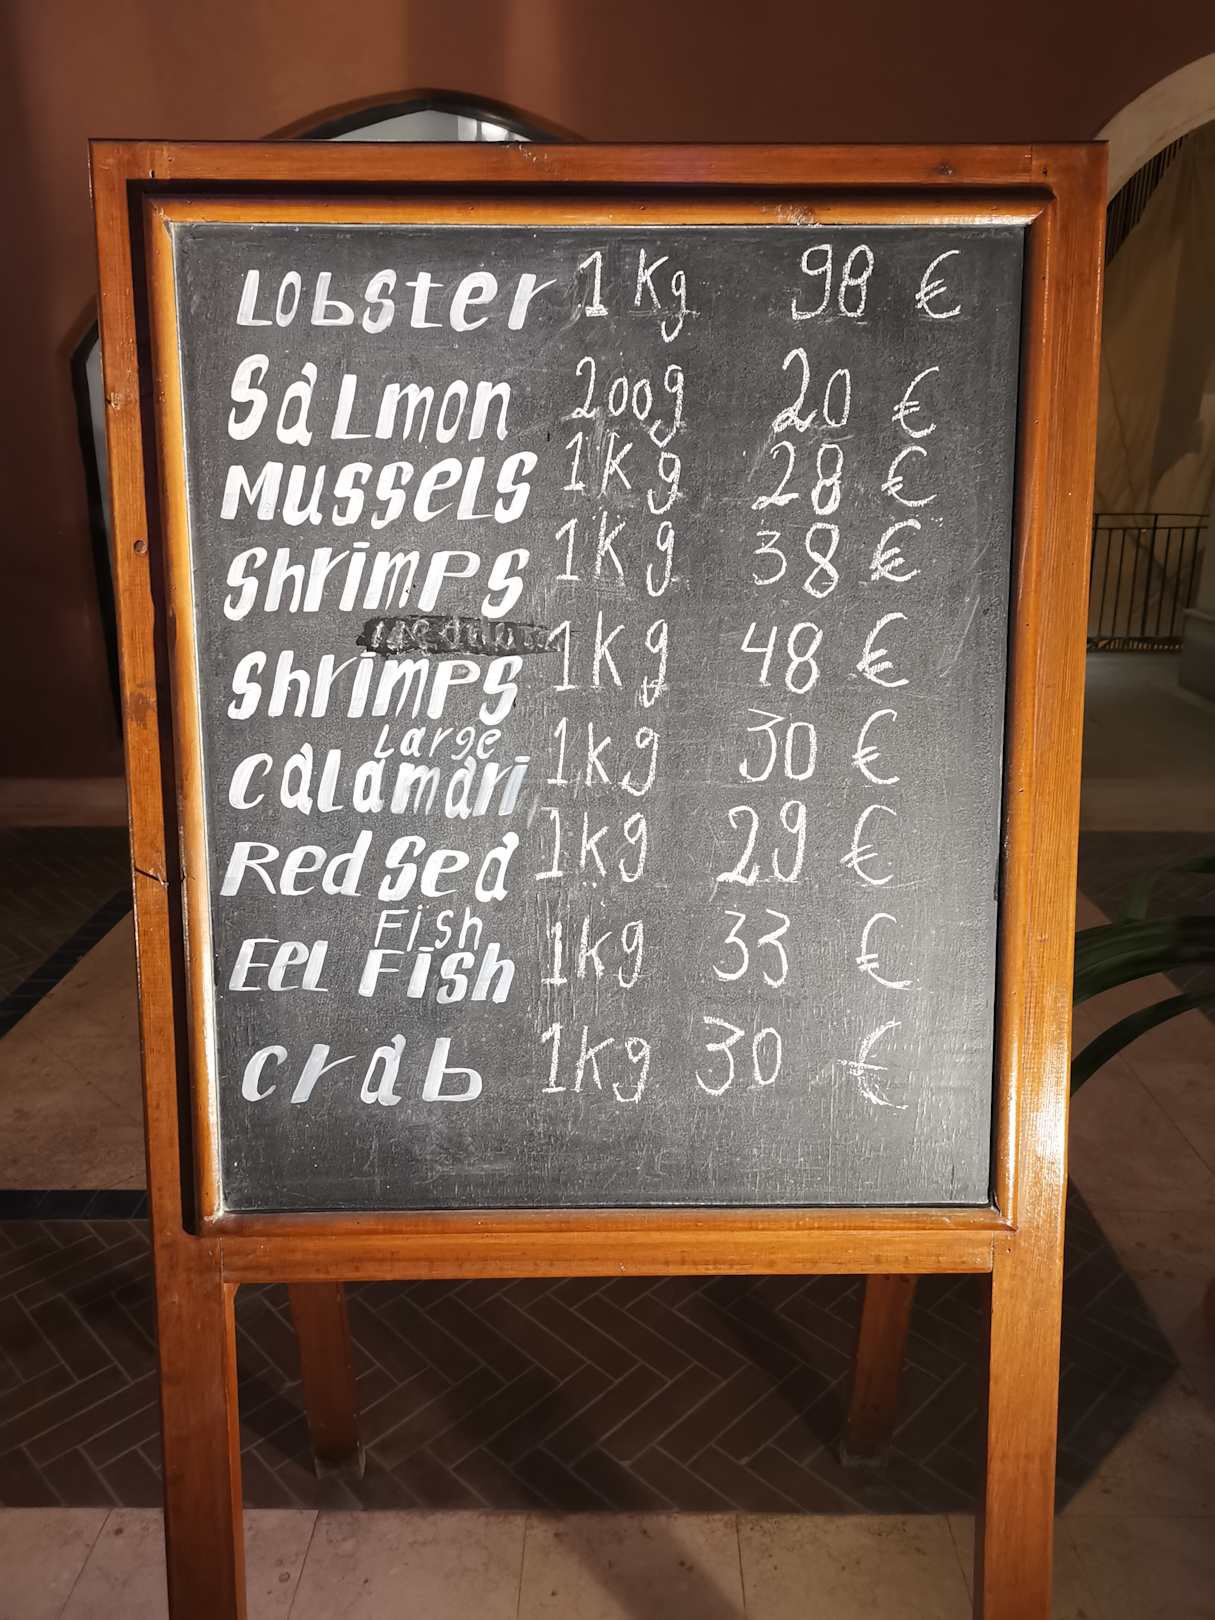 Lobster 1 Kg 98 €
Salmon 200g 20 €
Mussels 1 Kg 28 €
Shrimps 1 Kg 38 €
Shrimps 1 Kg 48 €
Large
Calamari 1kg 30 €
Red Sea 1kg 29 €
Fish
Eel Fish 1kg 33 €
Crab 1kg 30 €